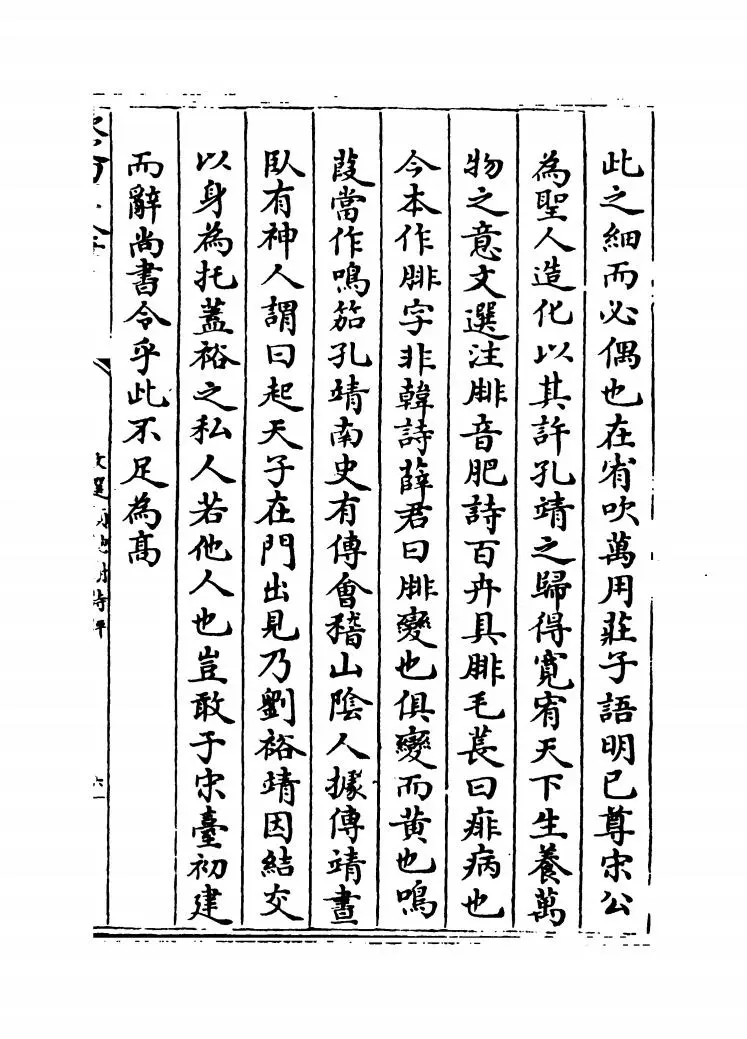 此之細而必偶也在宥吹萬用莊子語明已尊宋公
為聖人造化以其許孔靖之歸得寛宥天下生養萬
物之意文選注腓音肥詩百卉具腓毛萇曰痱病也
今本作腓字非韓詩薛君曰腓變也俱變而黄也鳴
葭當作鳴笳孔靖南史有傳會稽山陰人據傳靖晝
臥有神人謂曰起天子在門出見乃劉裕靖因結交
以身為托蓋裕之私人若他人也豈敢于宋臺初建
而辭尚書令乎此不足為髙
文選顔鮑謝詩評